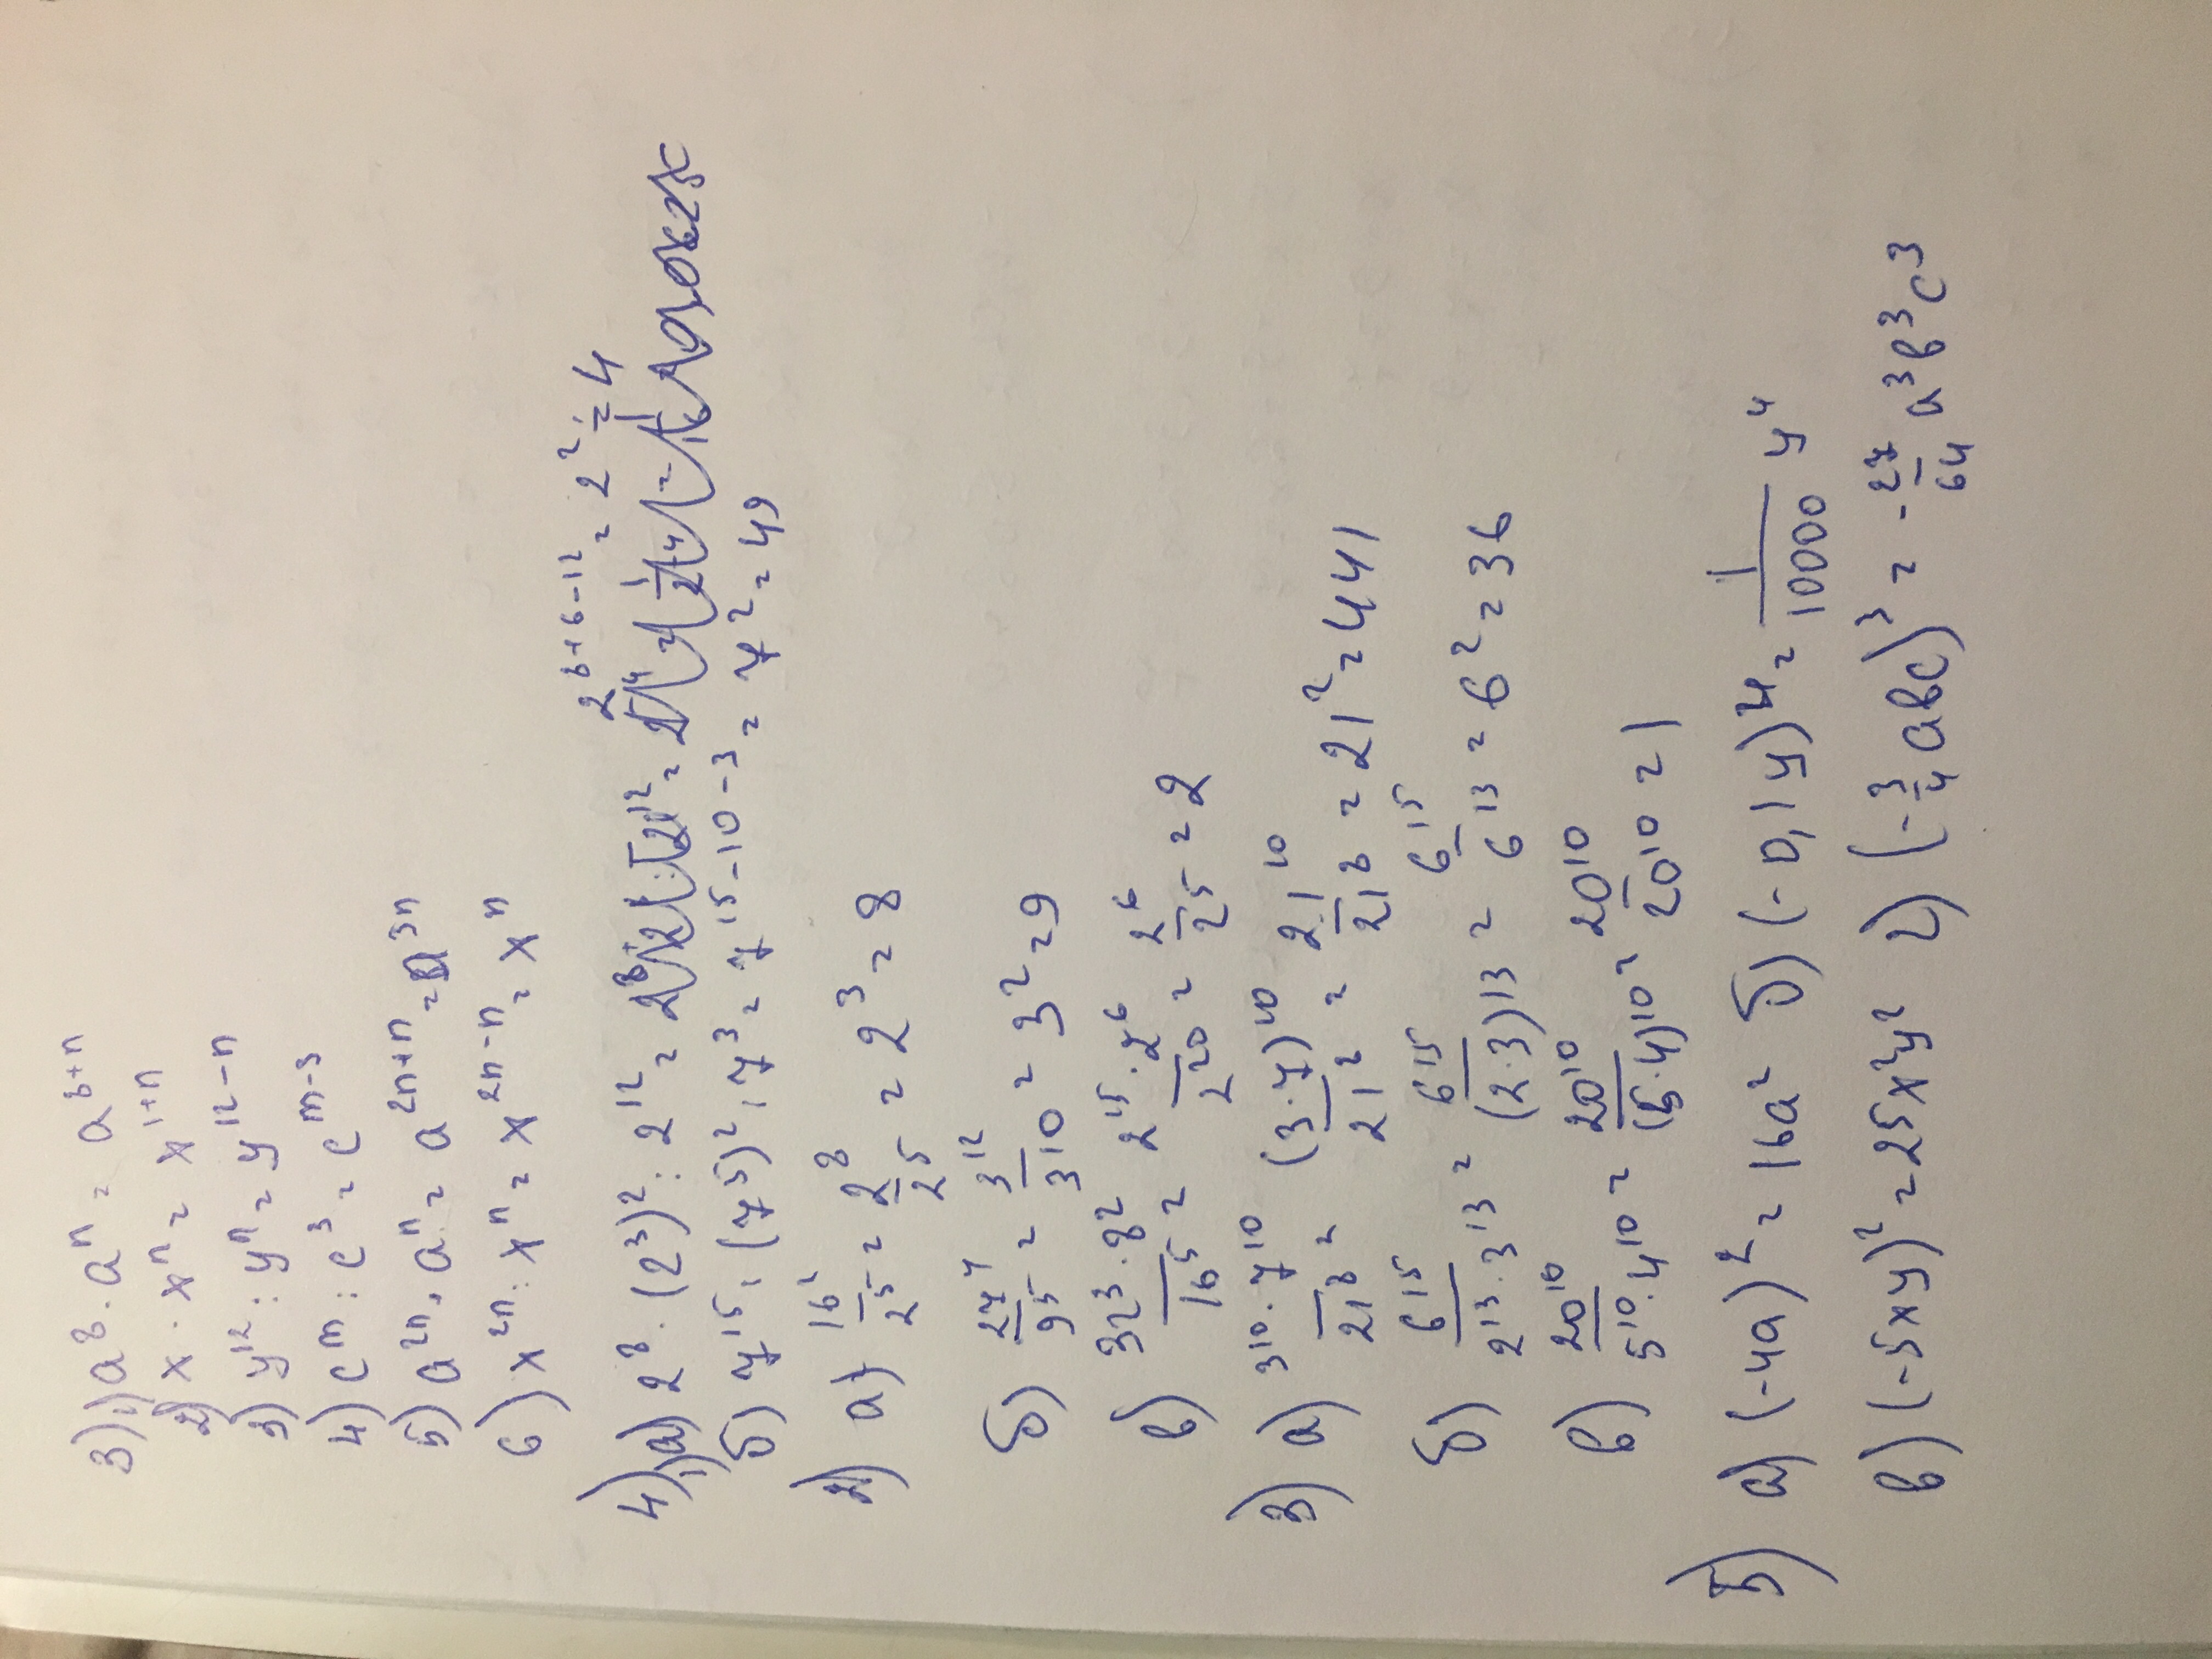 3) 1) a⁸ · aⁿ = a⁸⁺ⁿ
2) x · xⁿ = x¹⁺ⁿ
3) y¹² : yⁿ = y¹²⁻ⁿ
4) cᵐ : c³ = cᵐ⁻³
5) a²ⁿ · aⁿ = a²ⁿ⁺ⁿ = a³ⁿ
6) x²ⁿ : xⁿ = x²ⁿ⁻ⁿ = xⁿ
4) 1) а) 2⁸ · (2³)² : 2¹² = 2⁸⁺⁶⁻¹² = 2² = 4
б) 7¹⁵ : (7⁵)² : 7³ = 7¹⁵⁻¹⁰⁻³ = 7² = 49
2) а) 16²/2⁵ = 2⁸/2⁵ = 2³ = 8
б) 27⁴/9⁵ = 3¹²/3¹⁰ = 3² = 9
в) 32³ · 8²/16⁵ = 2¹⁵ · 2⁶/2²⁰ = 2⁶/2⁵ = 2
3) а) 3¹⁰ · 7¹⁰/21⁸ = (3 · 7)¹⁰/21² = 21¹⁰/21⁸ = 21² = 441
б) 6¹⁵/2¹³ · 3¹³ = 6¹⁵/(2 · 3)13 = 6¹⁵/6¹³ = 6² = 36
в) 20¹⁰/5¹⁰ · 4¹⁰ = 20¹⁰/(5 · 4)¹⁰ = 20¹⁰/20¹⁰ = 1
5) а) (-4a)² = 16a² б) (-0,1y)⁴ = 1/10000 y⁴
в) (-5xy)² = 25x²y² г) (-3/4 abc)³ = -27/64 a³b³c³